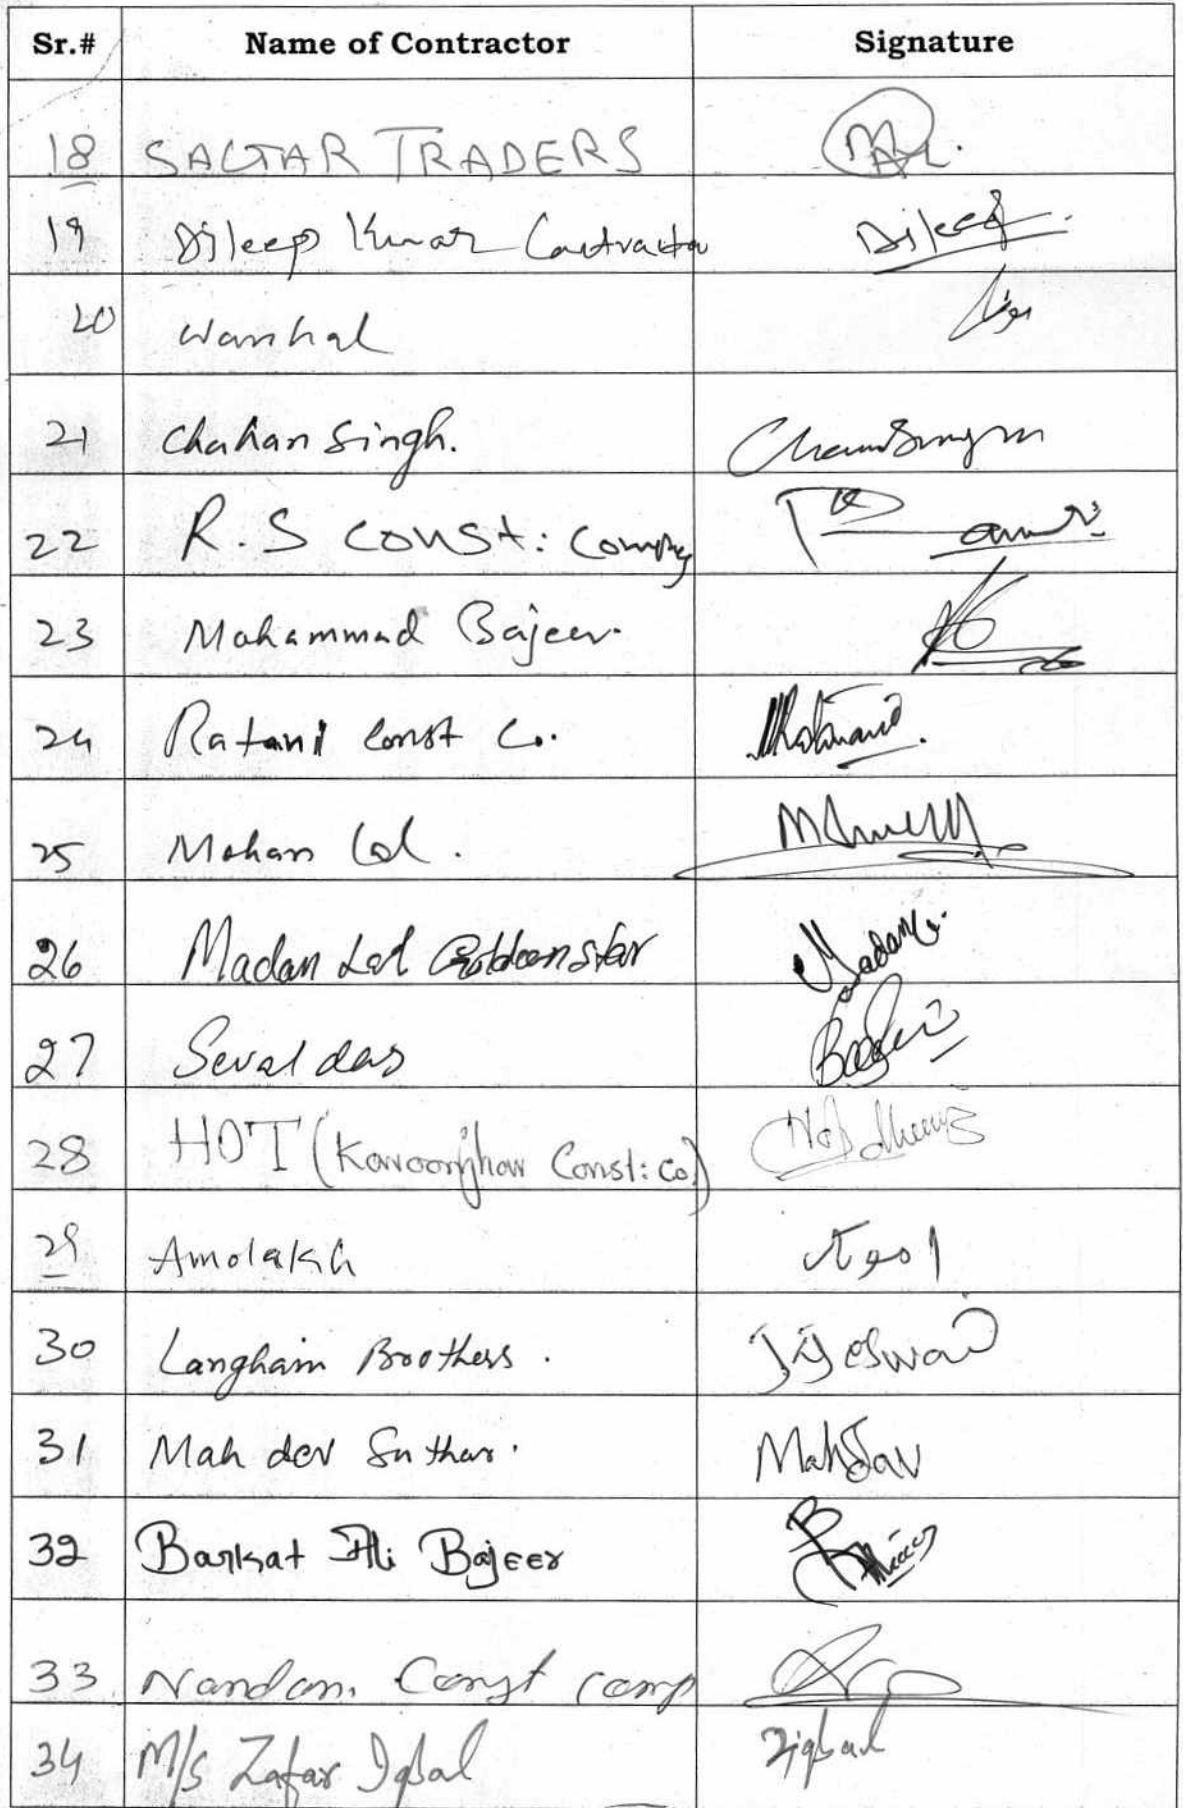 Sr.# Name of Contractor Signature
18 SAGTAR TRADERS
19 Dileep Kumar Contractor Dileep
20
21 Chahan Singh. Chamsingm
22 R.S CONSt: Compny
23 Mohammad Bajeer.
24 Ratani Const Co.
25 Mohan Lal.
26 Madan Lal Goldenstar Madan
27 Sevaldas
28 HOT (Karoonjhar Const: Co.)
29 Amolakh
30 Langhain Brothers. Jogeswar
31 Mahdev Suthar. MahDav
32 Barkat Ali Bajeer
33 Nandan Const Comp
34 M/s Zafar Iqbal Ziqbal